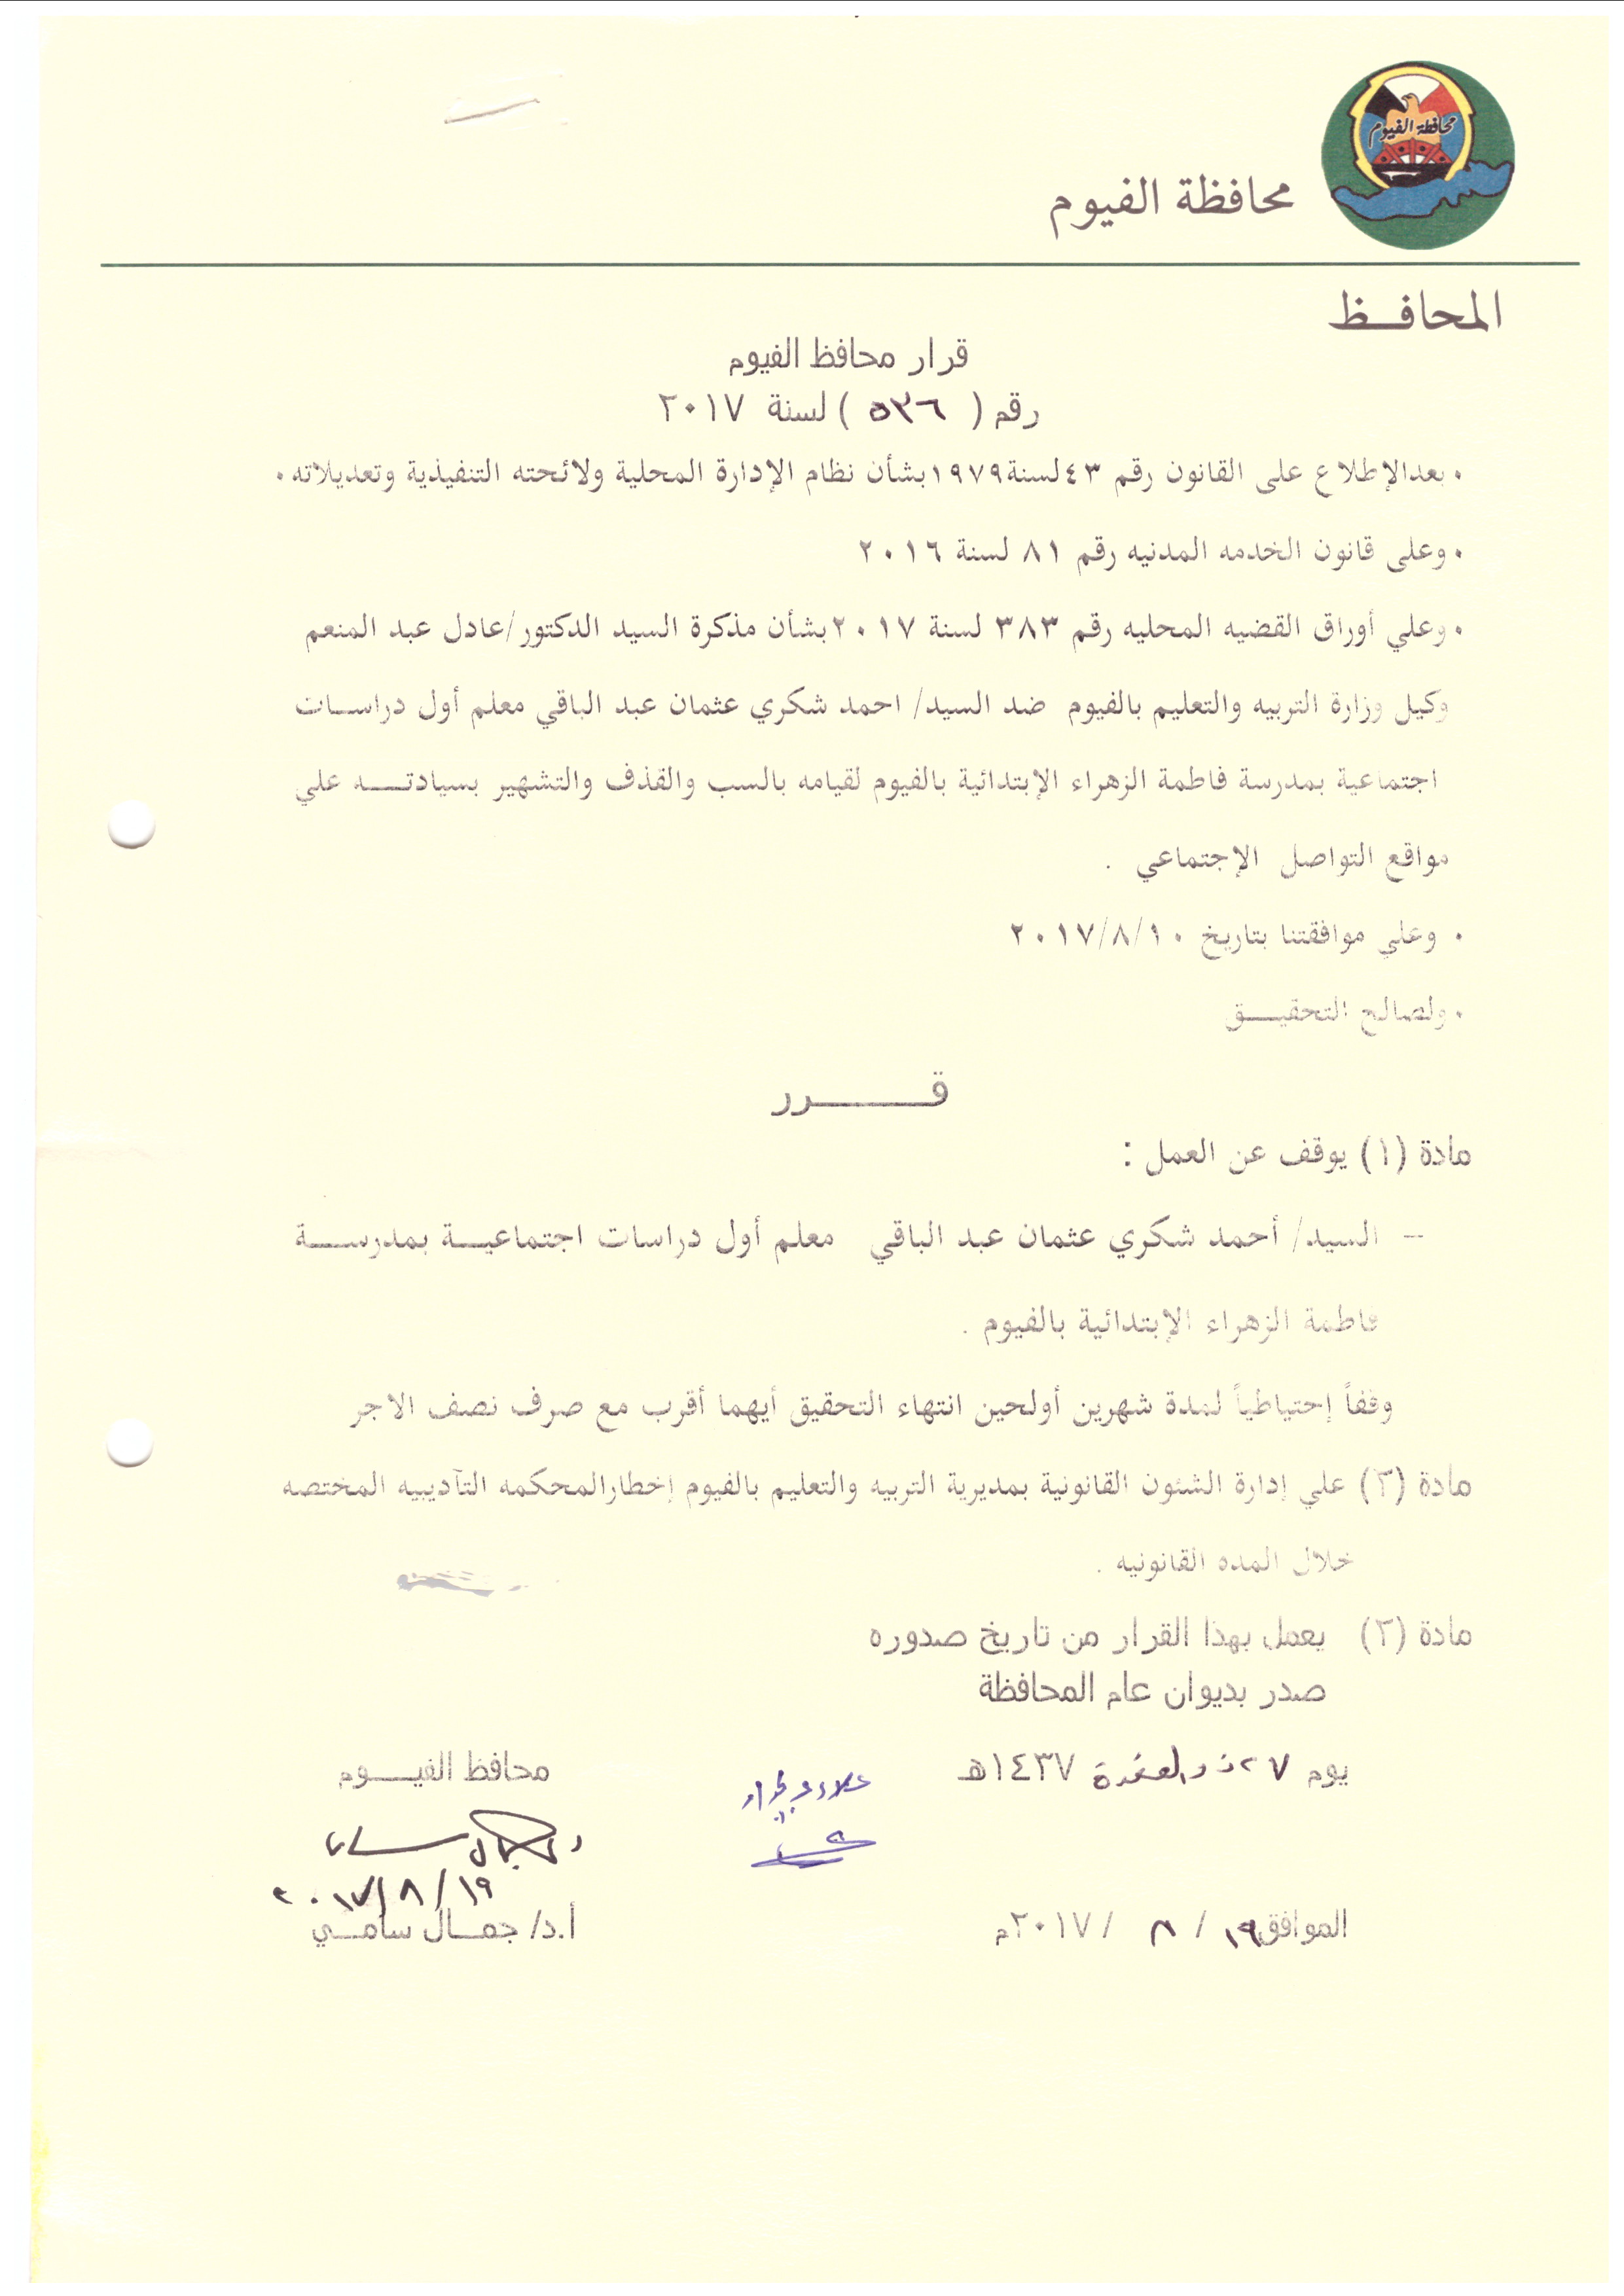 محافظة الفيوم
محافظة الفيوم
المحافـظ
قرار محافظ الفيوم
رقم ( ٥٣٦ ) لسنة ٢٠١٧
• بعدالإطلاع على القانون رقم ٤٣لسنة١٩٧٩بشأن نظام الإدارة المحلية ولائحته التنفيذية وتعديلاته •
• وعلى قانون الخدمه المدنيه رقم ٨١ لسنة ٢٠١٦
• وعلي أوراق القضيه المحليه رقم ٣٨٣ لسنة ٢٠١٧بشأن مذكرة السيد الدكتور/عادل عبد المنعم
وكيل وزارة التربيه والتعليم بالفيوم ضد السيد/ احمد شكري عثمان عبد الباقي معلم أول دراســات
اجتماعية بمدرسة فاطمة الزهراء الإبتدائية بالفيوم لقيامه بالسب والقذف والتشهير بسيادتـــه علي
مواقع التواصل الإجتماعي .
• وعلي موافقتنا بتاريخ ٢٠١٧/٨/١٠
• ولصالح التحقيــق
قـــــرر
مادة (١) يوقف عن العمل :
– السيد/ أحمد شكري عثمان عبد الباقي معلم أول دراسات اجتماعيــة بمدرســـة
فاطمة الزهراء الإبتدائية بالفيوم .
وقفاً إحتياطياً لمدة شهرين أولحين انتهاء التحقيق أيهما أقرب مع صرف نصف الاجر
مادة (٢) علي إدارة الشئون القانونية بمديرية التربيه والتعليم بالفيوم إخطارالمحكمه التآديبيه المختصه
خلال المده القانونيه .
مادة (٣) يعمل بهذا القرار من تاريخ صدوره
صدر بديوان عام المحافظة
يوم ٢٧ ذو القعدة ١٤٣٧هـ
محافظ الفيـــوم
٢٠١٧/٨/١٩
الموافق١٩ / ٨ / ٢٠١٧م
أ.د/ جمـــال سامـــي